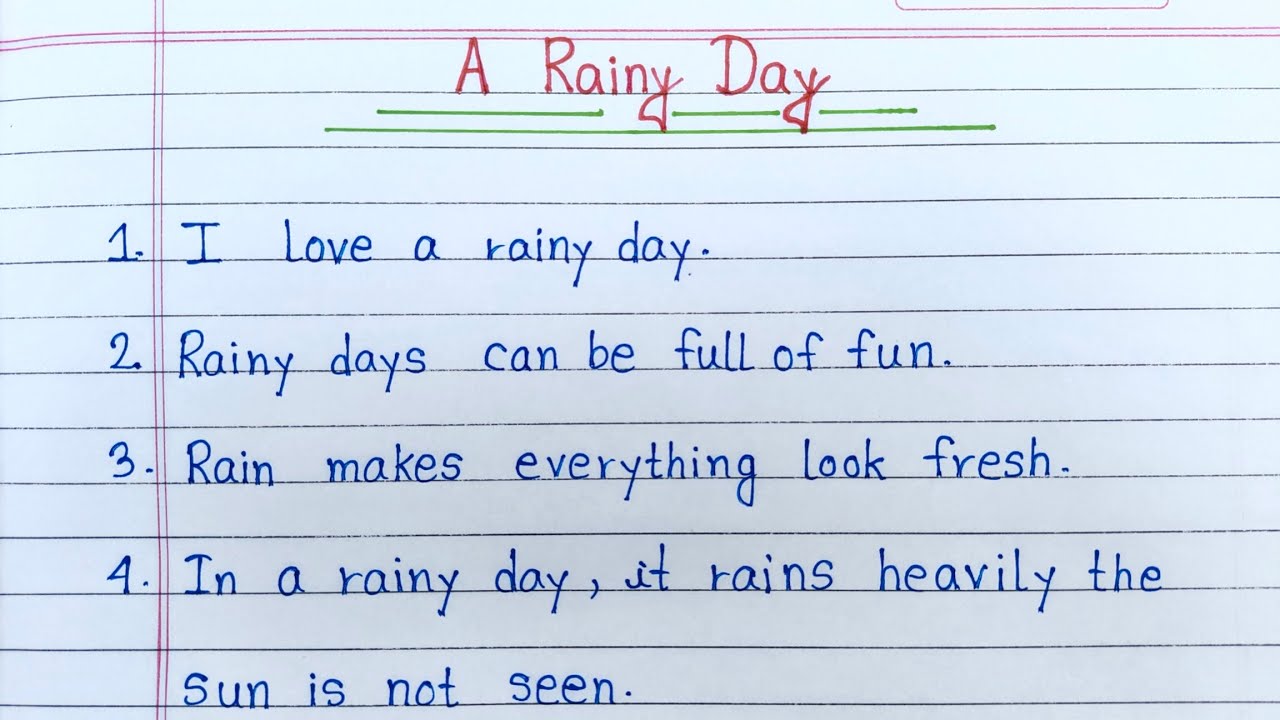 A Rainy Day
1. I love a rainy day.
2. Rainy days can be full of fun.
3. Rain makes everything look fresh.
4. In a rainy day, it rains heavily the
sun is not seen.